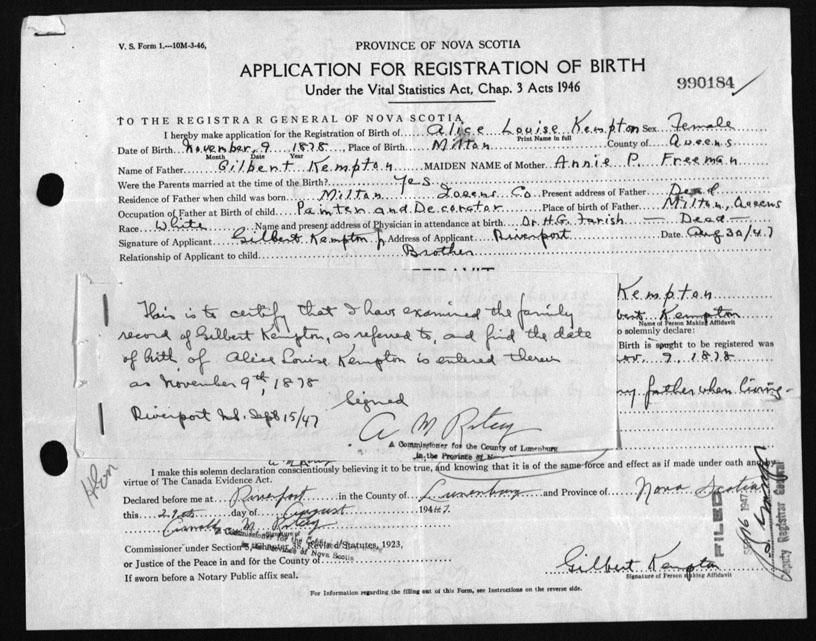 V. S. Form 1.—10M-3-46.
PROVINCE OF NOVA SCOTIA
APPLICATION FOR REGISTRATION OF BIRTH
Under the Vital Statistics Act, Chap. 3 Acts 1946
990184
TO THE REGISTRAR GENERAL OF NOVA SCOTIA
I hereby make application for the Registration of Birth of Alice Louise Kempton Sex Female
Print Name in full
Date of Birth November 9 1878 Place of Birth Milton County of Queens
Month Date Year
Name of Father Gilbert Kempton MAIDEN NAME of Mother Annie P. Freeman
Were the Parents married at the time of the Birth? Yes
Residence of Father when child was born Milton Queens Co Present address of Father Dead
Occupation of Father at Birth of child Painter and Decorator Place of birth of Father Milton, Queens
Race White Name and present address of Physician in attendance at birth Dr. H.G. Farish — Dead —
Signature of Applicant Gilbert Kempton Jr Address of Applicant Riverport Date Aug 30/47
Relationship of Applicant to child Brother
AFFIDAVIT
Kempton
Kempton
Name of Person Making Affidavit
solemnly declare:
Birth is sought to be registered was
9, 1878
my father when living
This is to certify that I have examined the family
record of Gilbert Kempton, as referred to, and find the date
of birth of Alice Louise Kempton is entered therein
as November 9th, 1878
Signed
Riverport N.S. Sept 15/47
A M Ritcy
A Commissioner for the County of Lunenburg
in the Province of
I make this solemn declaration conscientiously believing it to be true, and knowing that it is of the same force and effect as if made under oath and by
virtue of The Canada Evidence Act.
Declared before me at Riverport in the County of Lunenburg and Province of Nova Scotia
this 29th day of August 1947.
M. Ritcy
A Commissioner for the County of
Commissioner under Section 5, Chapter 38, Revised Statutes, 1923,
Province of Nova Scotia
or Justice of the Peace in and for the County of
If sworn before a Notary Public affix seal.
Gilbert Kempton
Signature of Person Making Affidavit
FILED
SEP 16 1947
Deputy Registrar General
For Information regarding the filling out of this Form, see Instructions on the reverse side.